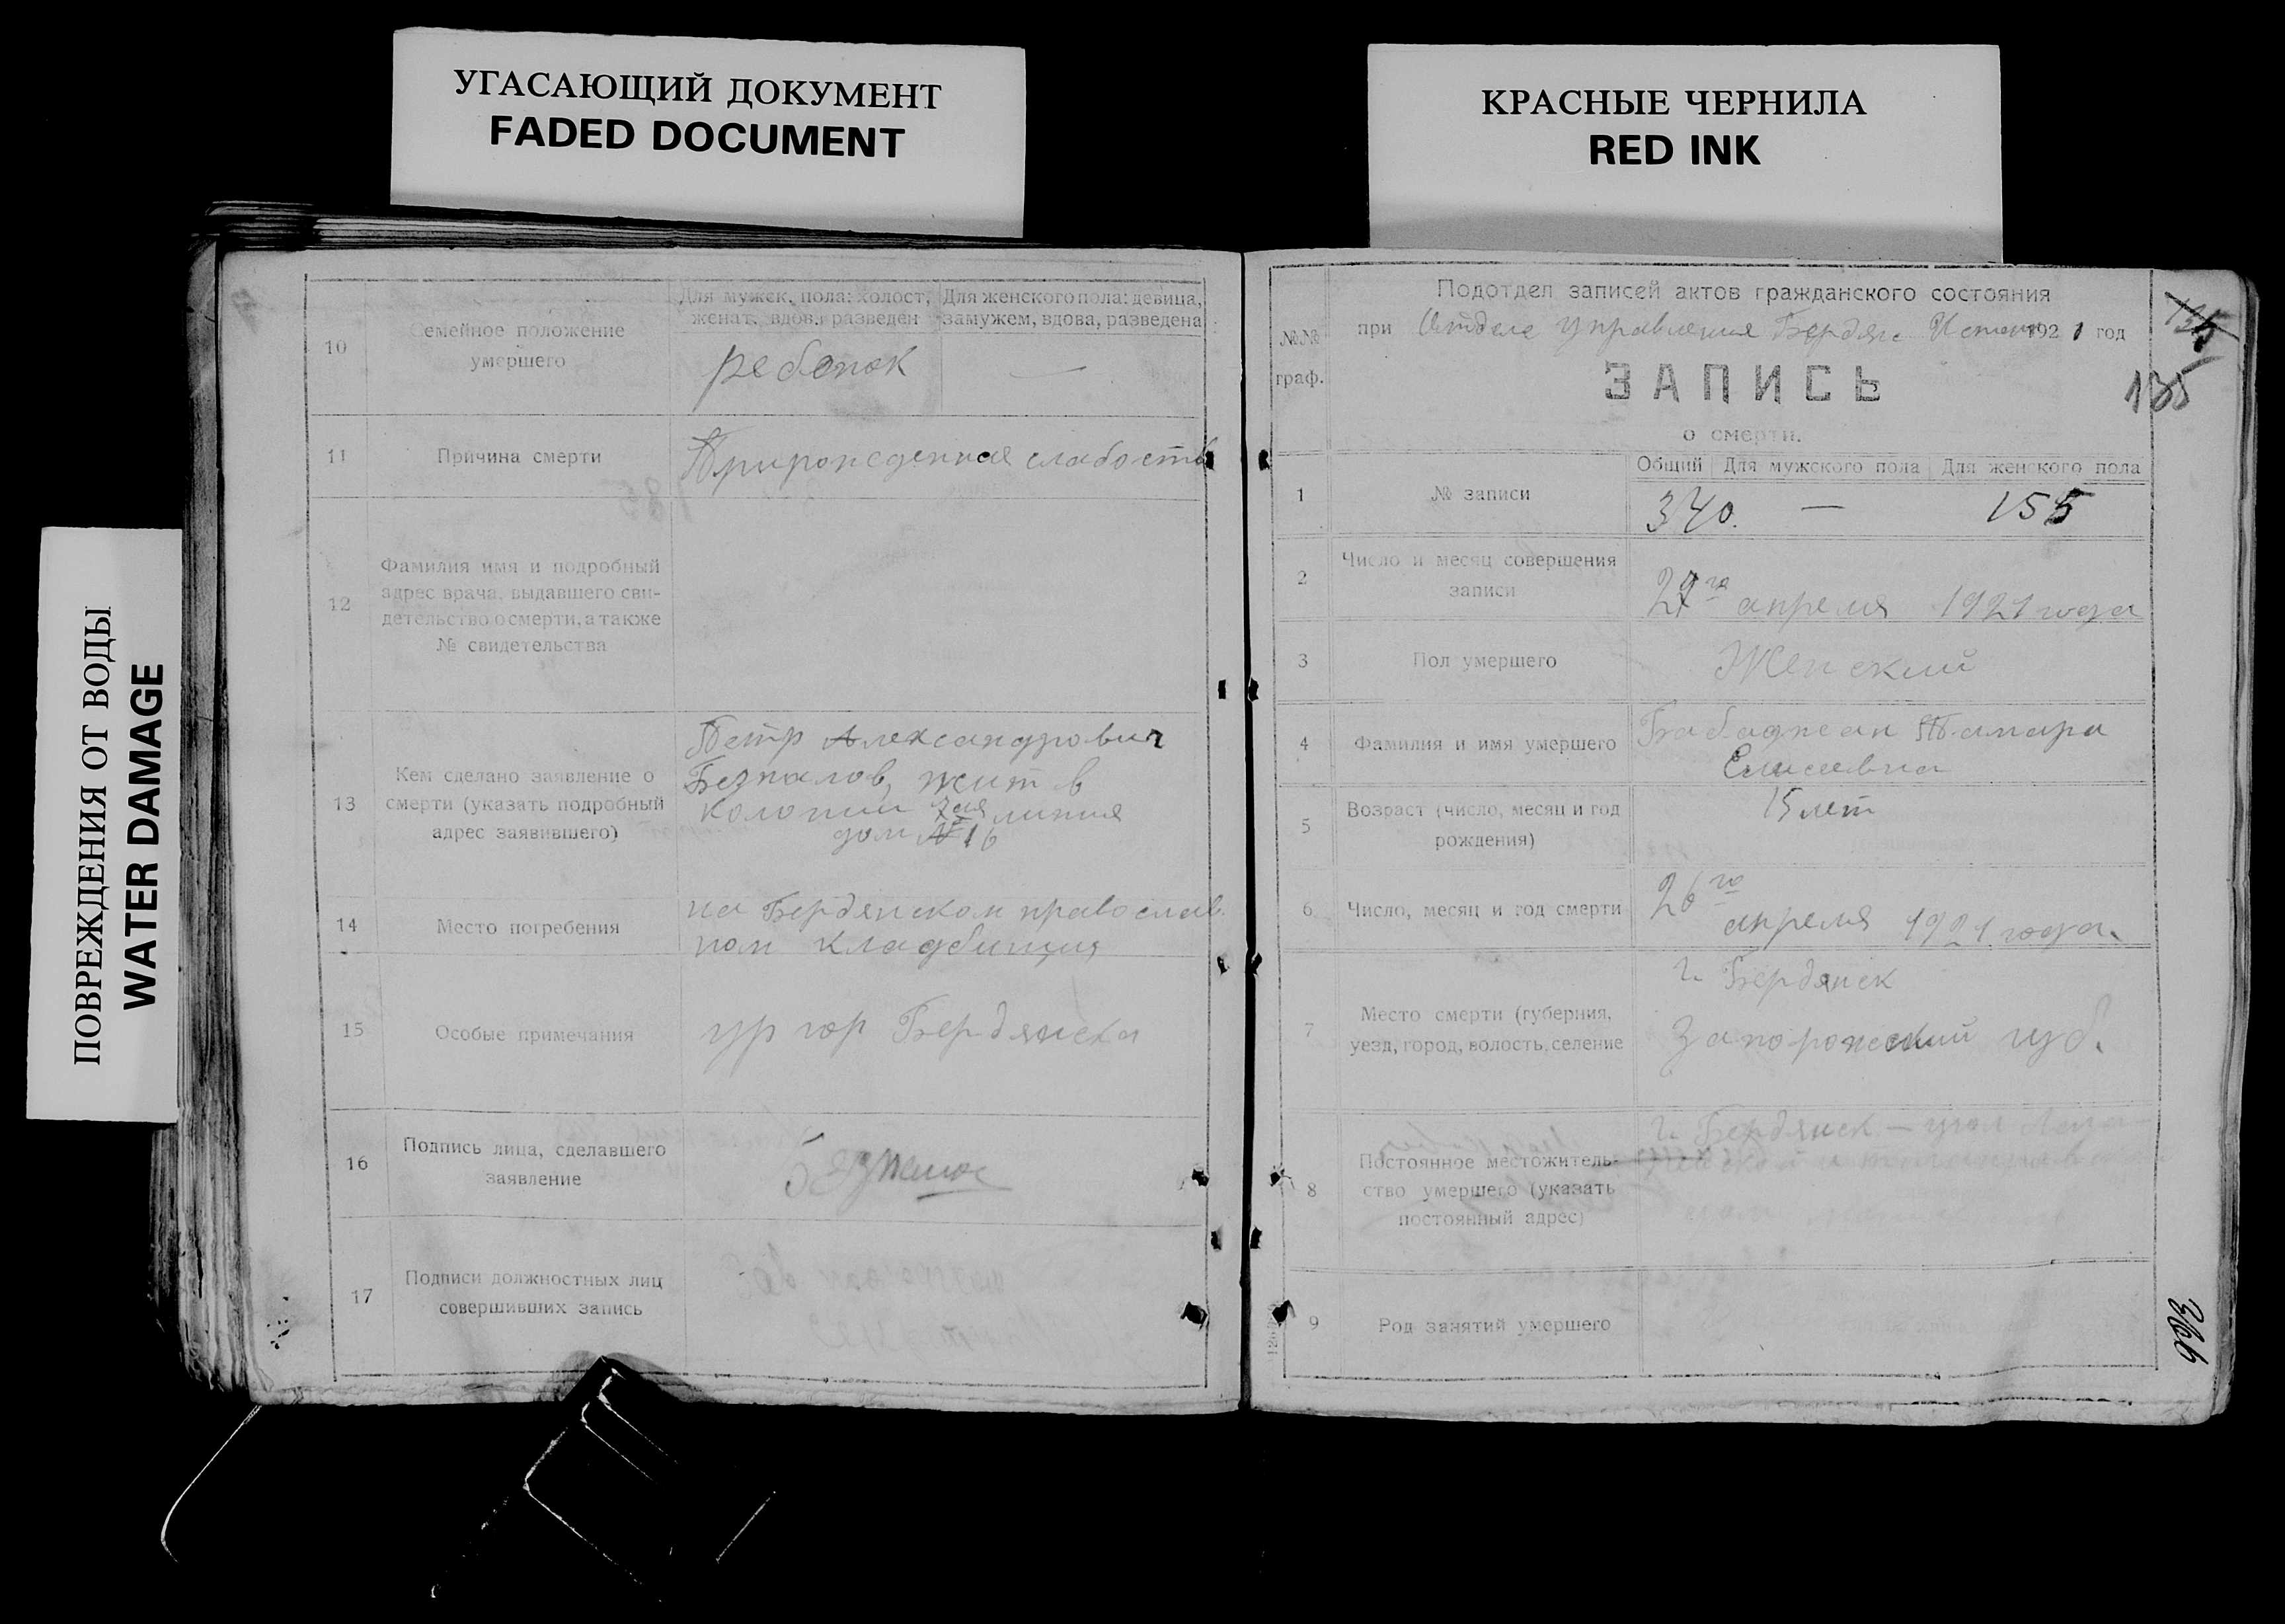 УГАСАЮЩИЙ ДОКУМЕНТ
FADED DOCUMENT
КРАСНЫЕ ЧЕРНИЛА
RED INK
ПОВРЕЖДЕНИЯ ОТ ВОДЫ
WATER DAMAGE
10
Семейное положение
умершего
Для мужек. пола: холост,
женат, вдов., разведен
Для женского пола: девица,
замужем, вдова, разведена
ребенок
—
11
Причина смерти
Прирожденная слабость
12
Фамилия имя и подробный
адрес врача, выдавшего сви-
детельство о смерти, а также
№ свидетельства
13
Кем сделано заявление о
смерти (указать подробный
адрес заявившего)
Петр Александрович
жит в
колонии 7ая линия
дом № 16
14
Место погребения
на Бердянском православ
ном кладбищия
15
Особые примечания
гр гор Бердянска
16
Подпись лица, сделавшего
заявление
17
Подписи должностных лиц
совершивших запись
№№
граф.
Подотдел записей актов гражданского состояния
при Отделе управления Бердян 1921 год
135
135
ЗАПИСЬ
о смерти.
1
№ записи
Общий Для мужского пола Для женского пола
340. — 155
2
Число и месяц совершения
записи
27го апреля 1921 года
3
Пол умершего
Женский
4
Фамилия и имя умершего
Бабаджан Тамара
Елисевна
5
Возраст (число, месяц и год
рождения)
15 лет
6
Число, месяц и год смерти
26го
апреля 1921 года.
7
Место смерти (губерния,
уезд, город, волость, селение
г. Бердянск
Запорожский губ.
8
Постоянное местожитель-
ство умершего (указать
постоянный адрес)
г. Бердянск — угол
9
Род занятий умершего
366